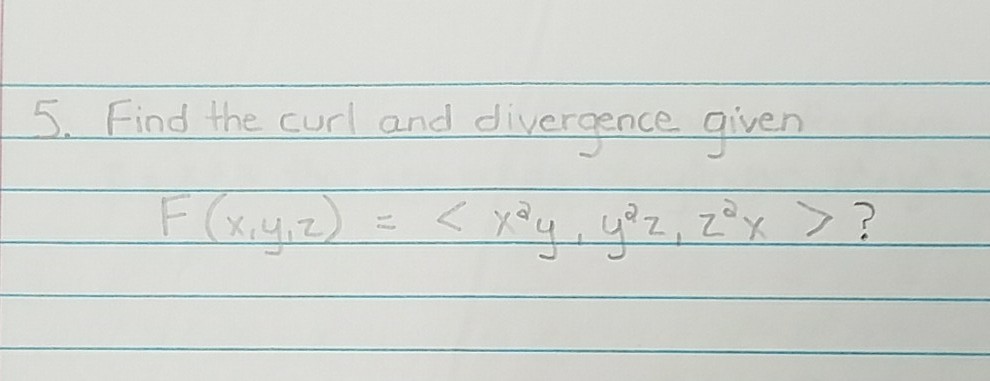 5. Find the curl and divergence given
F(x,y,z) = < x²y, y²z, z²x > ?